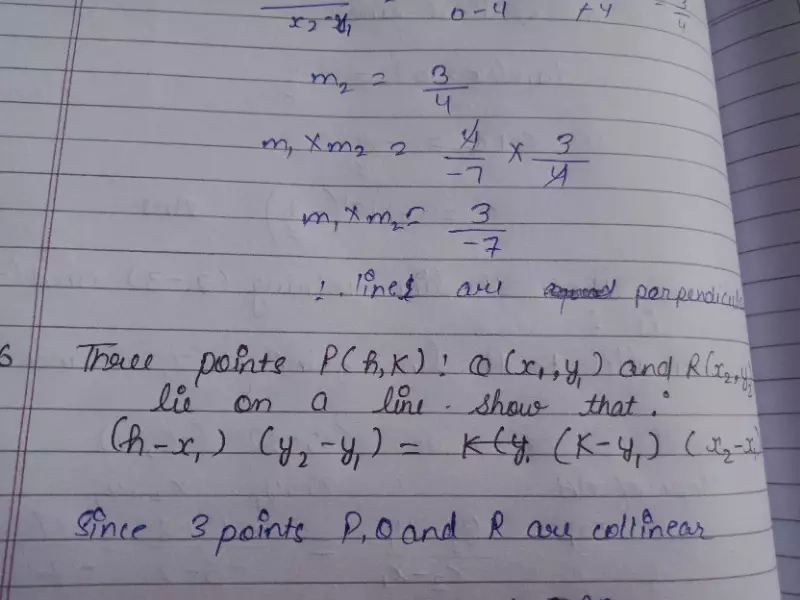 x₂-x₁ 0-4 +4 = 3/4
m₂ = 3/4
m₁ × m₂ = 4/-7 × 3/4
m₁ × m₂ = 3/-7
∴ lines are perpendicul
6 Three points P(h, K) : Q(x₁, y₁) and R(x₂, y₂
lie on a line. show that :
(h-x₁) (y₂-y₁) = (K-y₁) (x₂-x₁
Since 3 points P, Q and R are collinear